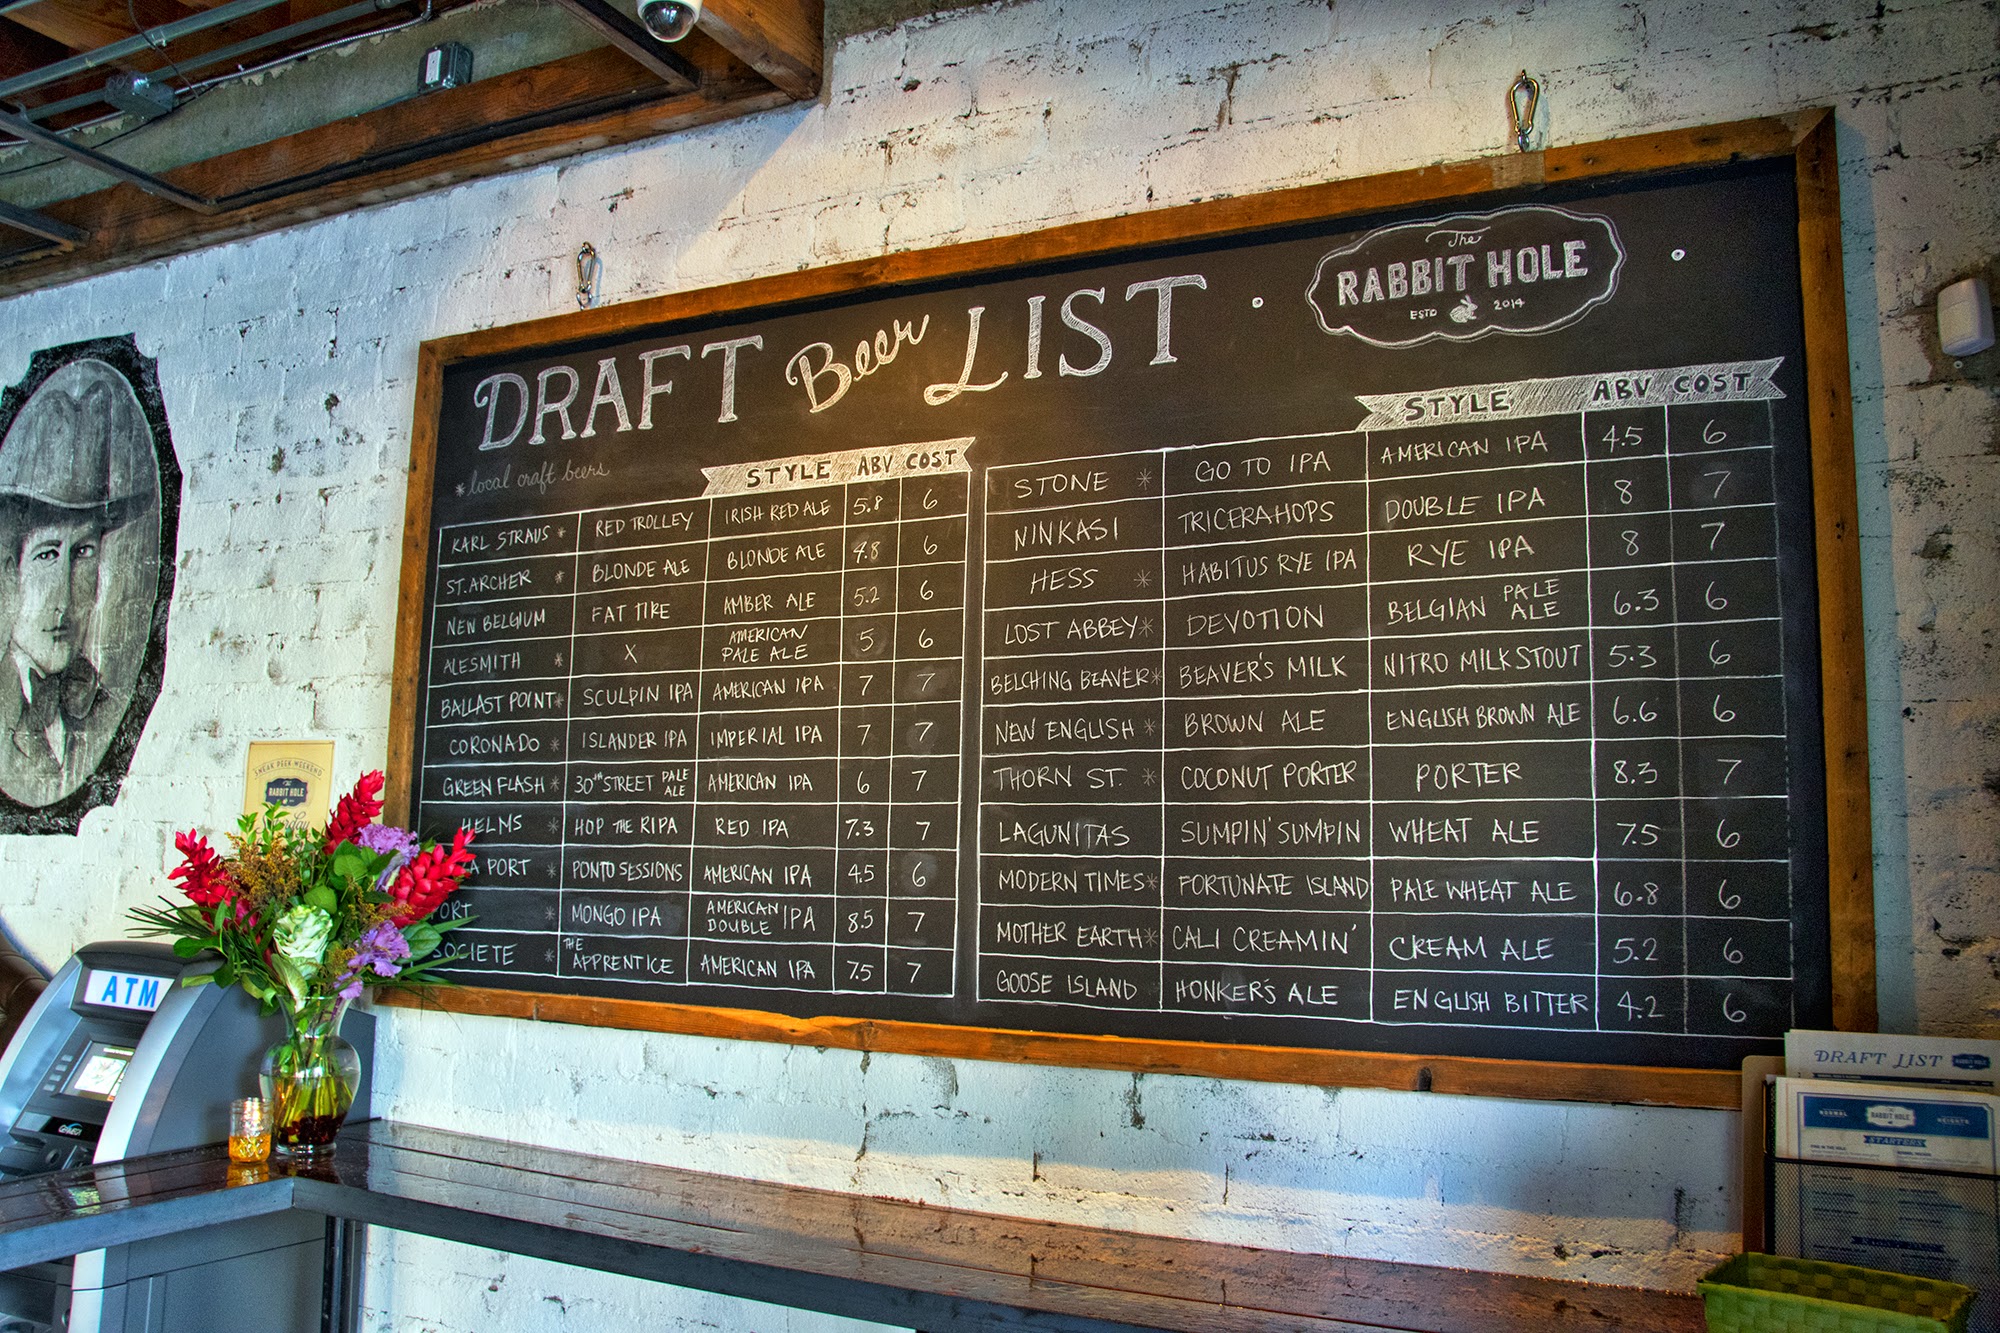 DRAFT Beer LIST
The
RABBIT HOLE
ESTD 2014
*local craft beers
STYLE ABV COST
KARL STRAUS * RED TROLLEY IRISH RED ALE 5.8 6
ST. ARCHER * BLONDE ALE BLONDE ALE 4.8 6
NEW BELGIUM FAT TIRE AMBER ALE 5.2 6
ALESMITH * X AMERICAN PALE ALE 5 6
BALLAST POINT * SCULPIN IPA AMERICAN IPA 7 7
CORONADO * ISLANDER IPA IMPERIAL IPA 7 7
GREEN FLASH * 30th STREET PALE ALE AMERICAN IPA 6 7
HELMS * HOP THE RIPA RED IPA 7.3 7
A PORT * PONTO SESSIONS AMERICAN IPA 4.5 6
PORT * MONGO IPA AMERICAN DOUBLE IPA 8.5 7
SOCIETE * THE APPRENTICE AMERICAN IPA 7.5 7
STYLE ABV COST
STONE * GO TO IPA AMERICAN IPA 4.5 6
NINKASI TRICERAHOPS DOUBLE IPA 8 7
HESS * HABITUS RYE IPA RYE IPA 8 7
LOST ABBEY * DEVOTION BELGIAN PALE ALE 6.3 6
BELCHING BEAVER * BEAVER'S MILK NITRO MILK STOUT 5.3 6
NEW ENGLISH * BROWN ALE ENGLISH BROWN ALE 6.6 6
THORN ST. * COCONUT PORTER PORTER 8.3 7
LAGUNITAS SUMPIN' SUMPIN WHEAT ALE 7.5 6
MODERN TIMES * FORTUNATE ISLAND PALE WHEAT ALE 6.8 6
MOTHER EARTH * CALI CREAMIN' CREAM ALE 5.2 6
GOOSE ISLAND HONKER'S ALE ENGLISH BITTER 4.2 6
SNEAK PEEK WEEKEND
The
RABBIT HOLE
ATM
DRAFT LIST
NORMAL RABBIT HOLE HEIGHTS
STARTERS